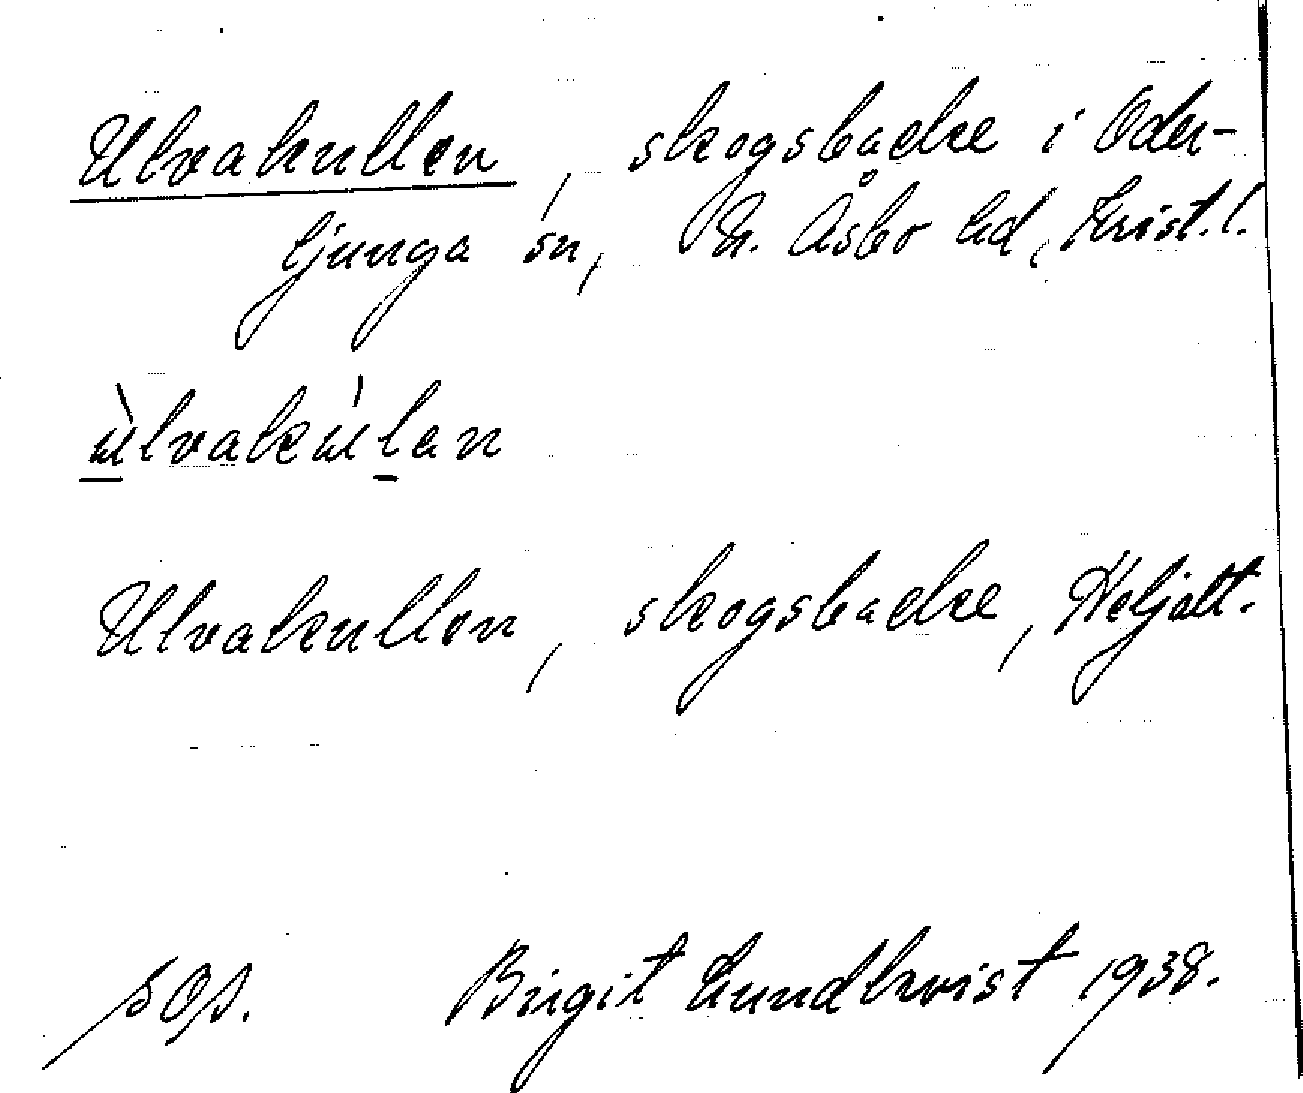 Ulvakullen, skogsbacke i Oder-
ljunga sn, N. Åsbo hd, Krist. l.
ùlvakúlan
Ulvakullen, skogsbacke,
Birgit Lundkvist 1938.